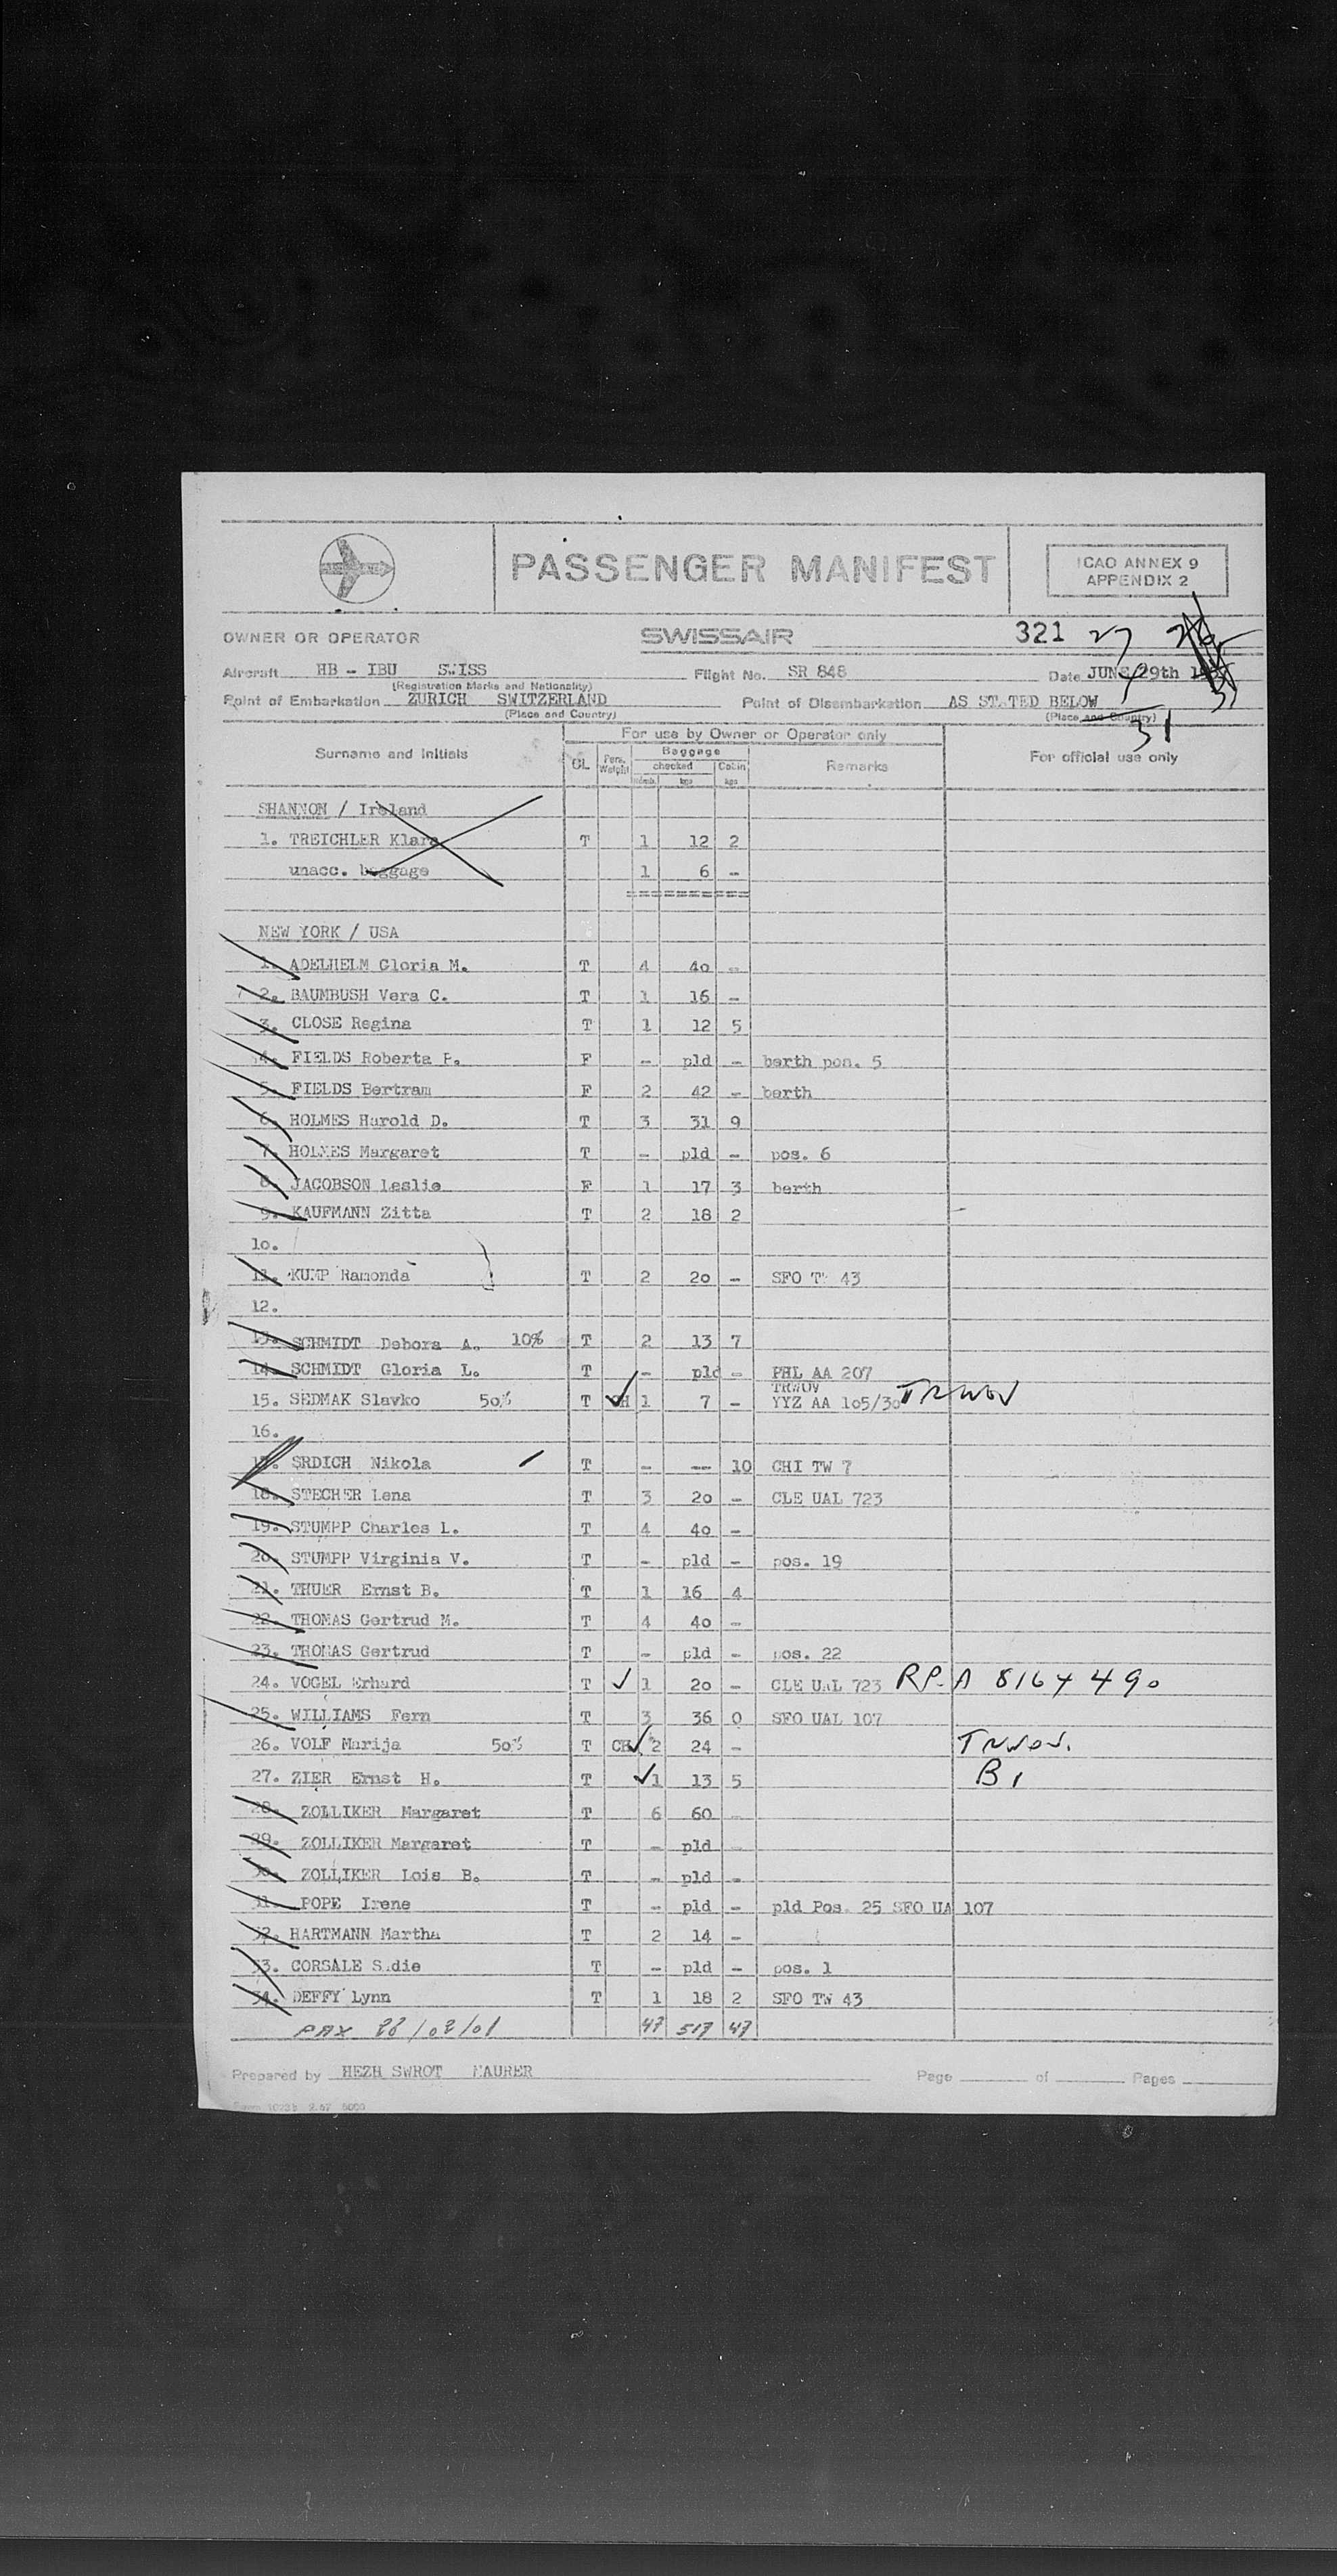 PASSENGER MANIFEST
ICAO ANNEX 9
APPENDIX 2
OWNER OR OPERATOR SWISSAIR 321 27
Aircraft HB - IBU SWISS Flight No. SR 848 Date JUNE 29th
(Registration Marks and Nationality)
Point of Embarkation ZURICH SWITZERLAND Point of Disembarkation AS ST.TED BELOW
(Place and Country) (Place and Country)
31
For use by Owner or Operator only
Surname and Initials CL Pers. Weight Baggage Remarks For official use only
checked Cabin
Numb. kgs kgs
SHANNON / Ireland
1. TREICHLER Klara T 1 12 2
unacc. baggage 1 6 -
NEW YORK / USA
1. ADELHELM Gloria M. T 4 40 -
2. BAUMBUSH Vera C. T 1 16 -
3. CLOSE Regina T 1 12 5
4. FIELDS Roberta P. F - pld - berth pon. 5
5. FIELDS Bertram F 2 42 - berth
6. HOLMES Harold D. T 3 31 9
7. HOLMES Margaret T - pld - pos. 6
8. JACOBSON Leslie F 1 17 3 berth
9. KAUFMANN Zitta T 2 18 2
10.
11. KUMP Ramonda T 2 20 - SFO TW 43
12.
13. SCHMIDT Debora A. 10% T 2 13 7
14. SCHMIDT Gloria L. T - pld - PHL AA 207
TRWOV
15. SEDMAK Slavko 50% T CH 1 7 - YYZ AA 105/30 TRWOV
16.
17. SRDICH Nikola T - -- 10 CHI TW 7
18. STECHER Lena T 3 20 - CLE UAL 723
19. STUMPP Charles L. T 4 40 -
20. STUMPP Virginia V. T - pld - pos. 19
21. THUER Ernst B. T 1 16 4
22. THOMAS Gertrud M. T 4 40 -
23. THOMAS Gertrud T - pld - pos. 22
24. VOGEL Erhard T ✓ 1 20 - CLE UAL 723 RP-A 8164490
25. WILLIAMS Fern T 3 36 0 SFO UAL 107
26. VOLF Marija 50% T CH ✓ 2 24 - TRWOV.
27. ZIER Ernst H. T ✓ 1 13 5 B1
28. ZOLLIKER Margaret T 6 60 -
29. ZOLLIKER Margaret T - pld -
30. ZOLLIKER Lois B. T - pld -
31. POPE Irene T - pld - pld Pos. 25 SFO UA 107
32. HARTMANN Martha T 2 14 -
33. CORSALE S.die T - pld - pos. 1
34. DEFFY Lynn T 1 18 2 SFO TW 43
PAX 28/02/01 47 517 47
Prepared by HEZH SWROT MAURER Page of Pages